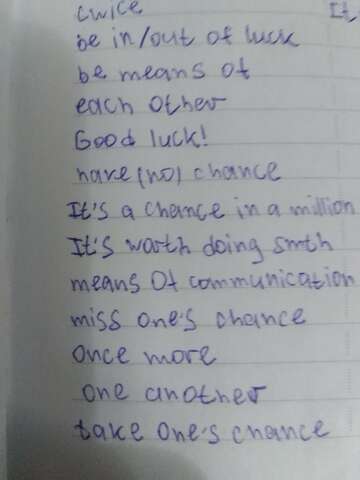 twice It
be in/out of luck
be means of
each other
Good luck!
have (no) chance
It's a chance in a million
It's worth doing smth
means of communication
miss one's chance
once more
one another
take one's chance